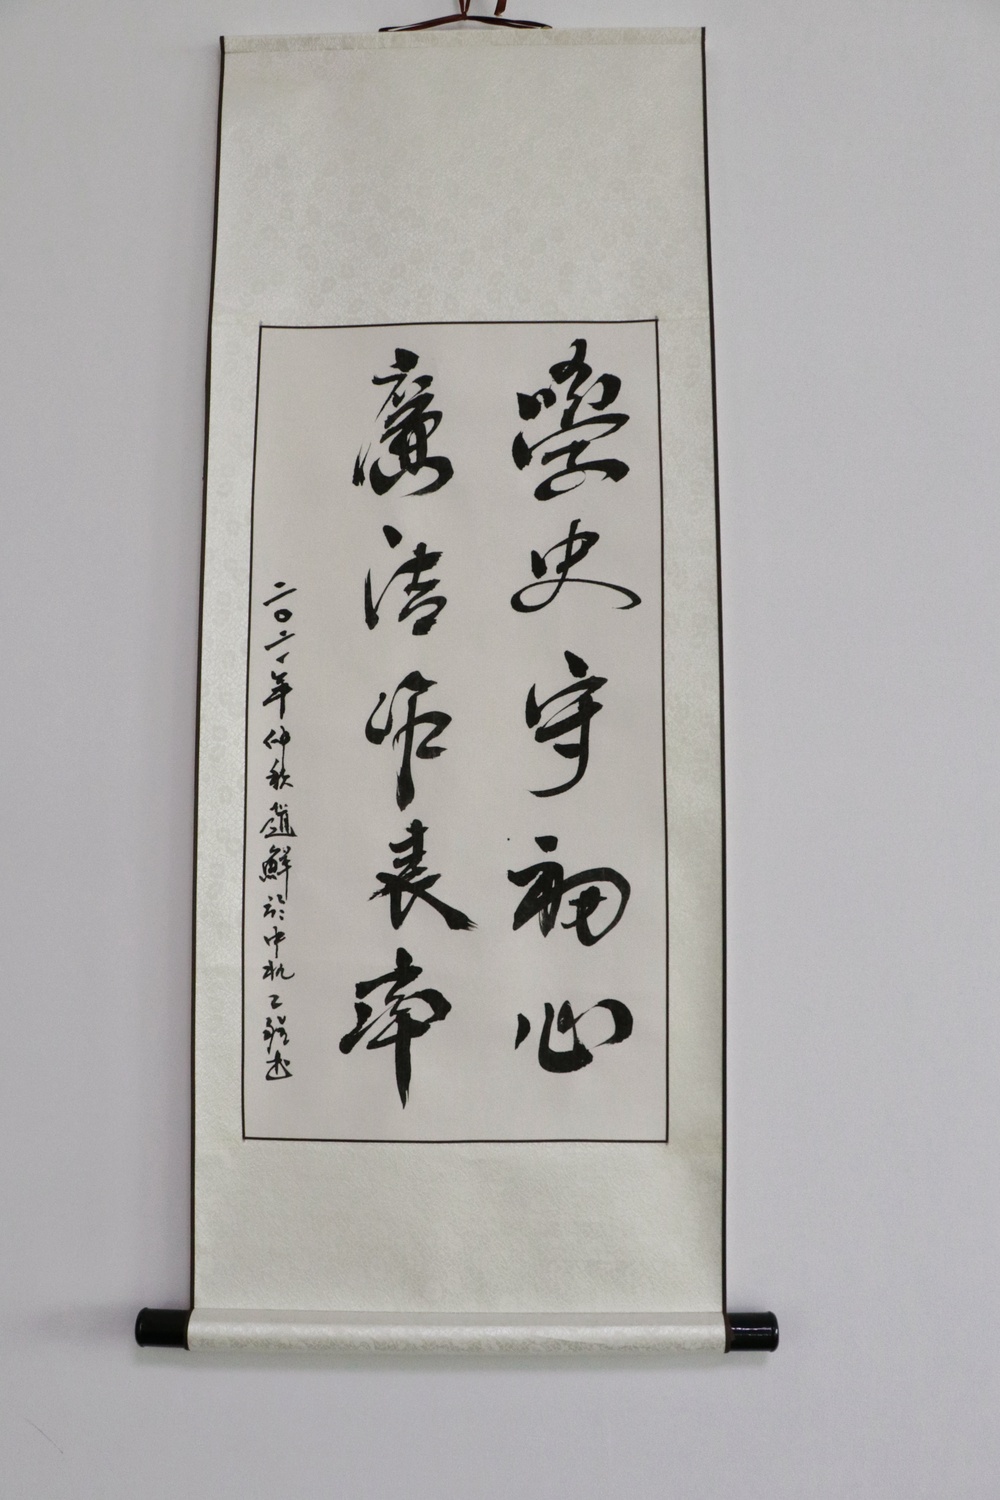 學史守初心
廉洁作表率
二〇二一年仲秋趙鮮於中杭乙強书